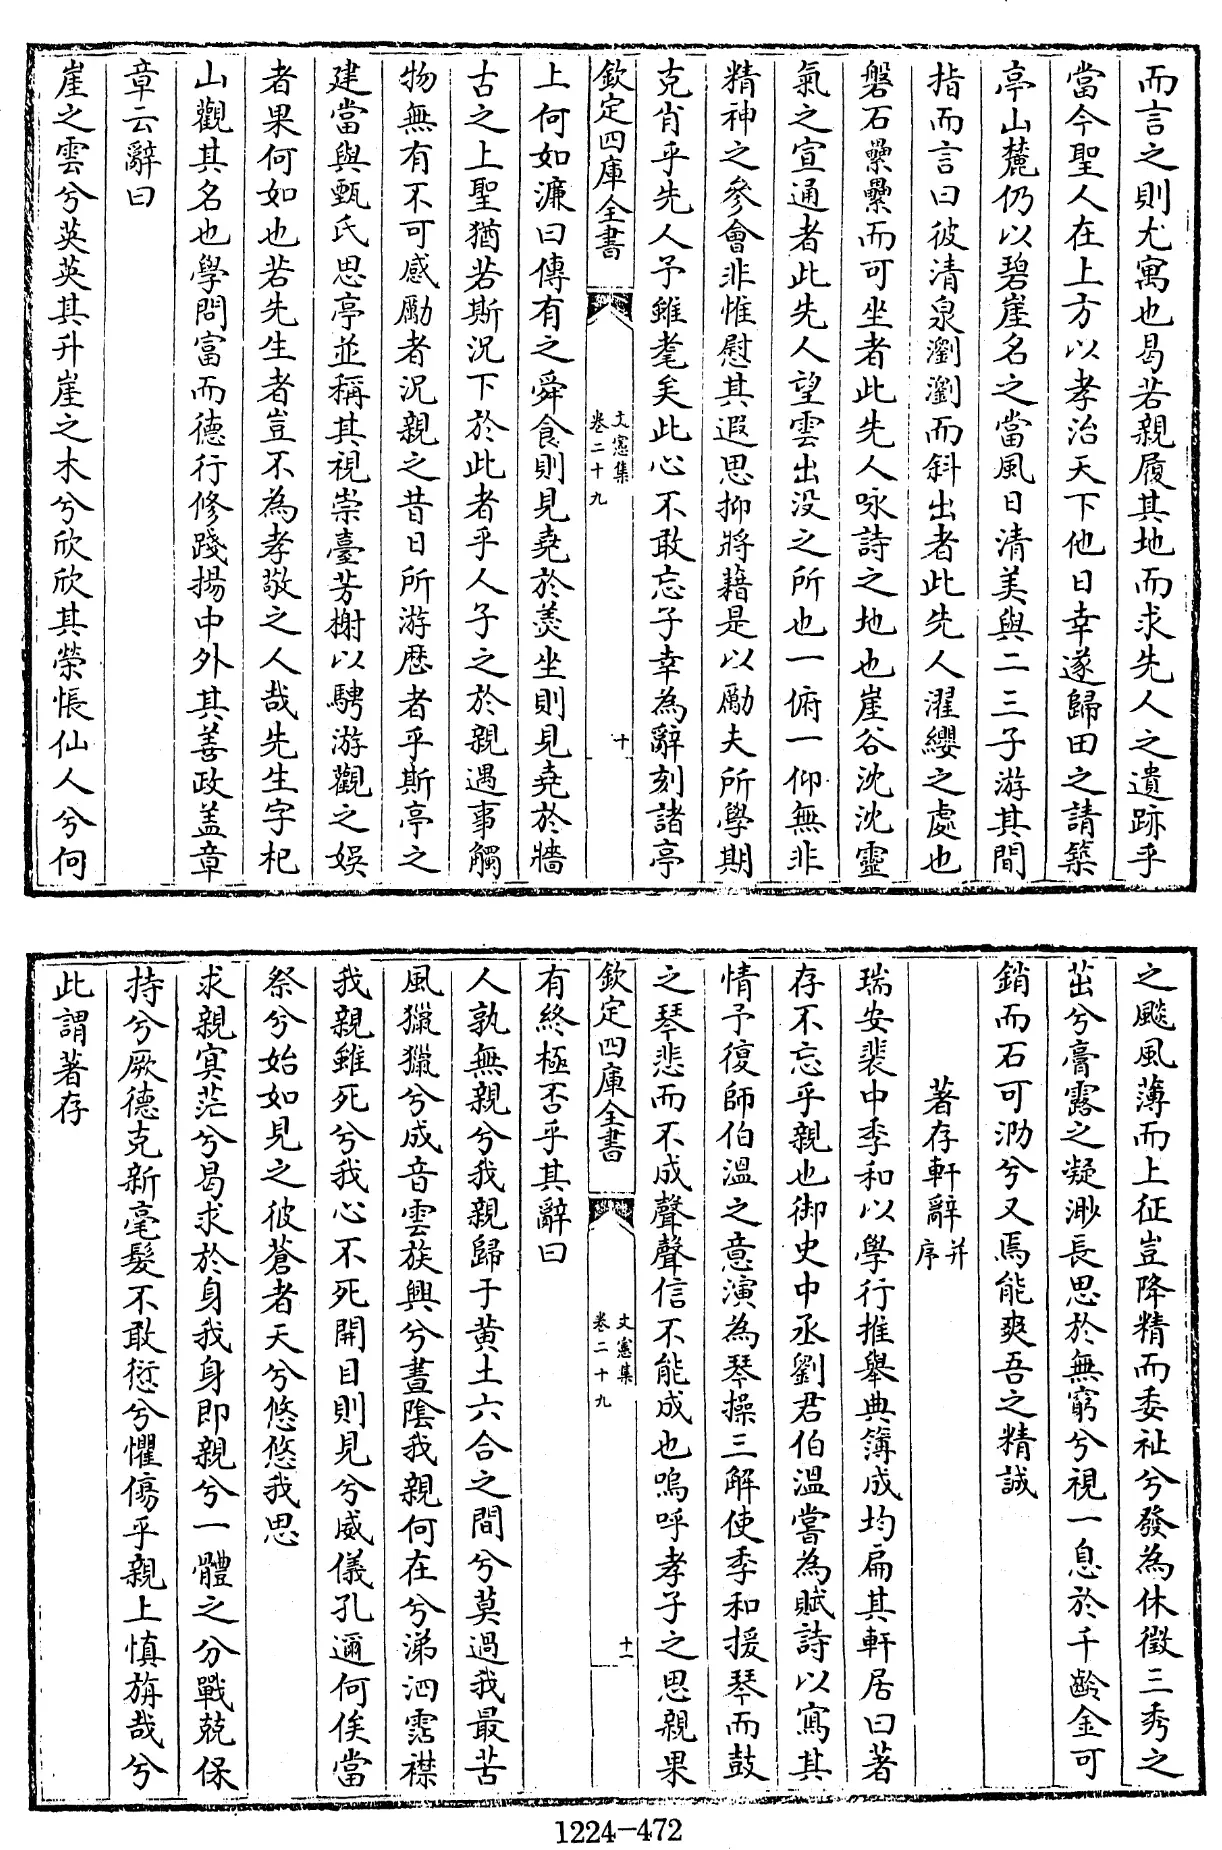 而言之則尤寓也曷若親履其地而求先人之遺跡乎
當今聖人在上方以孝治天下他日幸遂歸田之請築
亭山麓仍以碧崖名之當風日清美與二三子游其間
指而言曰彼清泉瀏瀏而斜出者此先人濯纓之處也
磐石纍纍而可坐者此先人咏詩之地也崖谷沈沈靈
氣之宣通者此先人望雲出没之所也一俯一仰無非
精神之參會非惟慰其遐思抑將藉是以勵夫所學期
克肖乎先人予雖耄矣此心不敢忘子幸為辭刻諸亭
欽定四庫全書
文憲集
卷二十九
十
上何如濂曰傳有之舜食則見堯於羮坐則見堯於牆
古之上聖猶若斯況下於此者乎人子之於親遇事觸
物無有不可感勵者況親之昔日所游歴者乎斯亭之
建當與甄氏思亭並稱其視崇臺芳榭以騁游觀之娱
者果何如也若先生者豈不為孝敬之人哉先生字杞
山觀其名也學問富而德行修踐揚中外其善政盖章
章云辭曰
崖之雲兮英英其升崖之木兮欣欣其榮悵仙人兮何
之飈風薄而上征豈降精而委祉兮發為休徵三秀之
茁兮膏露之凝渺長思於無窮兮視一息於千齡金可
銷而石可泐兮又焉能爽吾之精誠
著存軒辭并序
瑞安裴中季和以學行推舉典簿成均扁其軒居曰著
存不忘乎親也御史中丞劉君伯溫嘗為賦詩以寫其
情予復師伯溫之意演為琴操三解使季和援琴而鼓
之琴悲而不成聲聲信不能成也嗚呼孝子之思親果
欽定四庫全書
文憲集
卷二十九
十一
有終極否乎其辭曰
人孰無親兮我親歸于黄土六合之間兮莫過我最苦
風獵獵兮成音雲族興兮晝陰我親何在兮涕泗霑襟
我親雖死兮我心不死開目則見兮威儀孔邇何俟當
祭兮始如見之彼蒼者天兮悠悠我思
求親㝠茫兮曷求於身我身即親兮一體之分戰兢保
持兮厥德克新毫髮不敢愆兮懼傷乎親上慎旃哉兮
此謂著存
1224-472